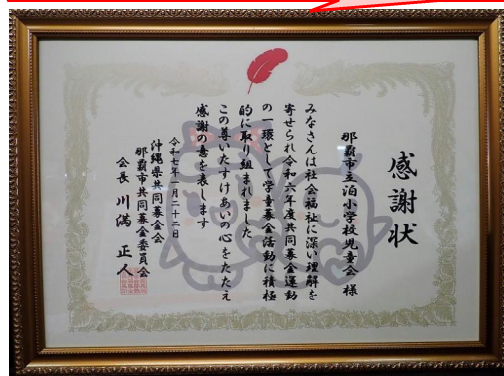 感謝状
那覇市立泊小学校児童会 様
みなさんは社会福祉に深い理解を
寄せられ令和六年度共同募金運動
の一環として学童募金活動に積極
的に取り組まれました
この尊いたすけあいの心をたたえ
感謝の意を表します
令和七年一月二十二日
沖縄県共同募金会
那覇市共同募金委員会
会長 川満 正人